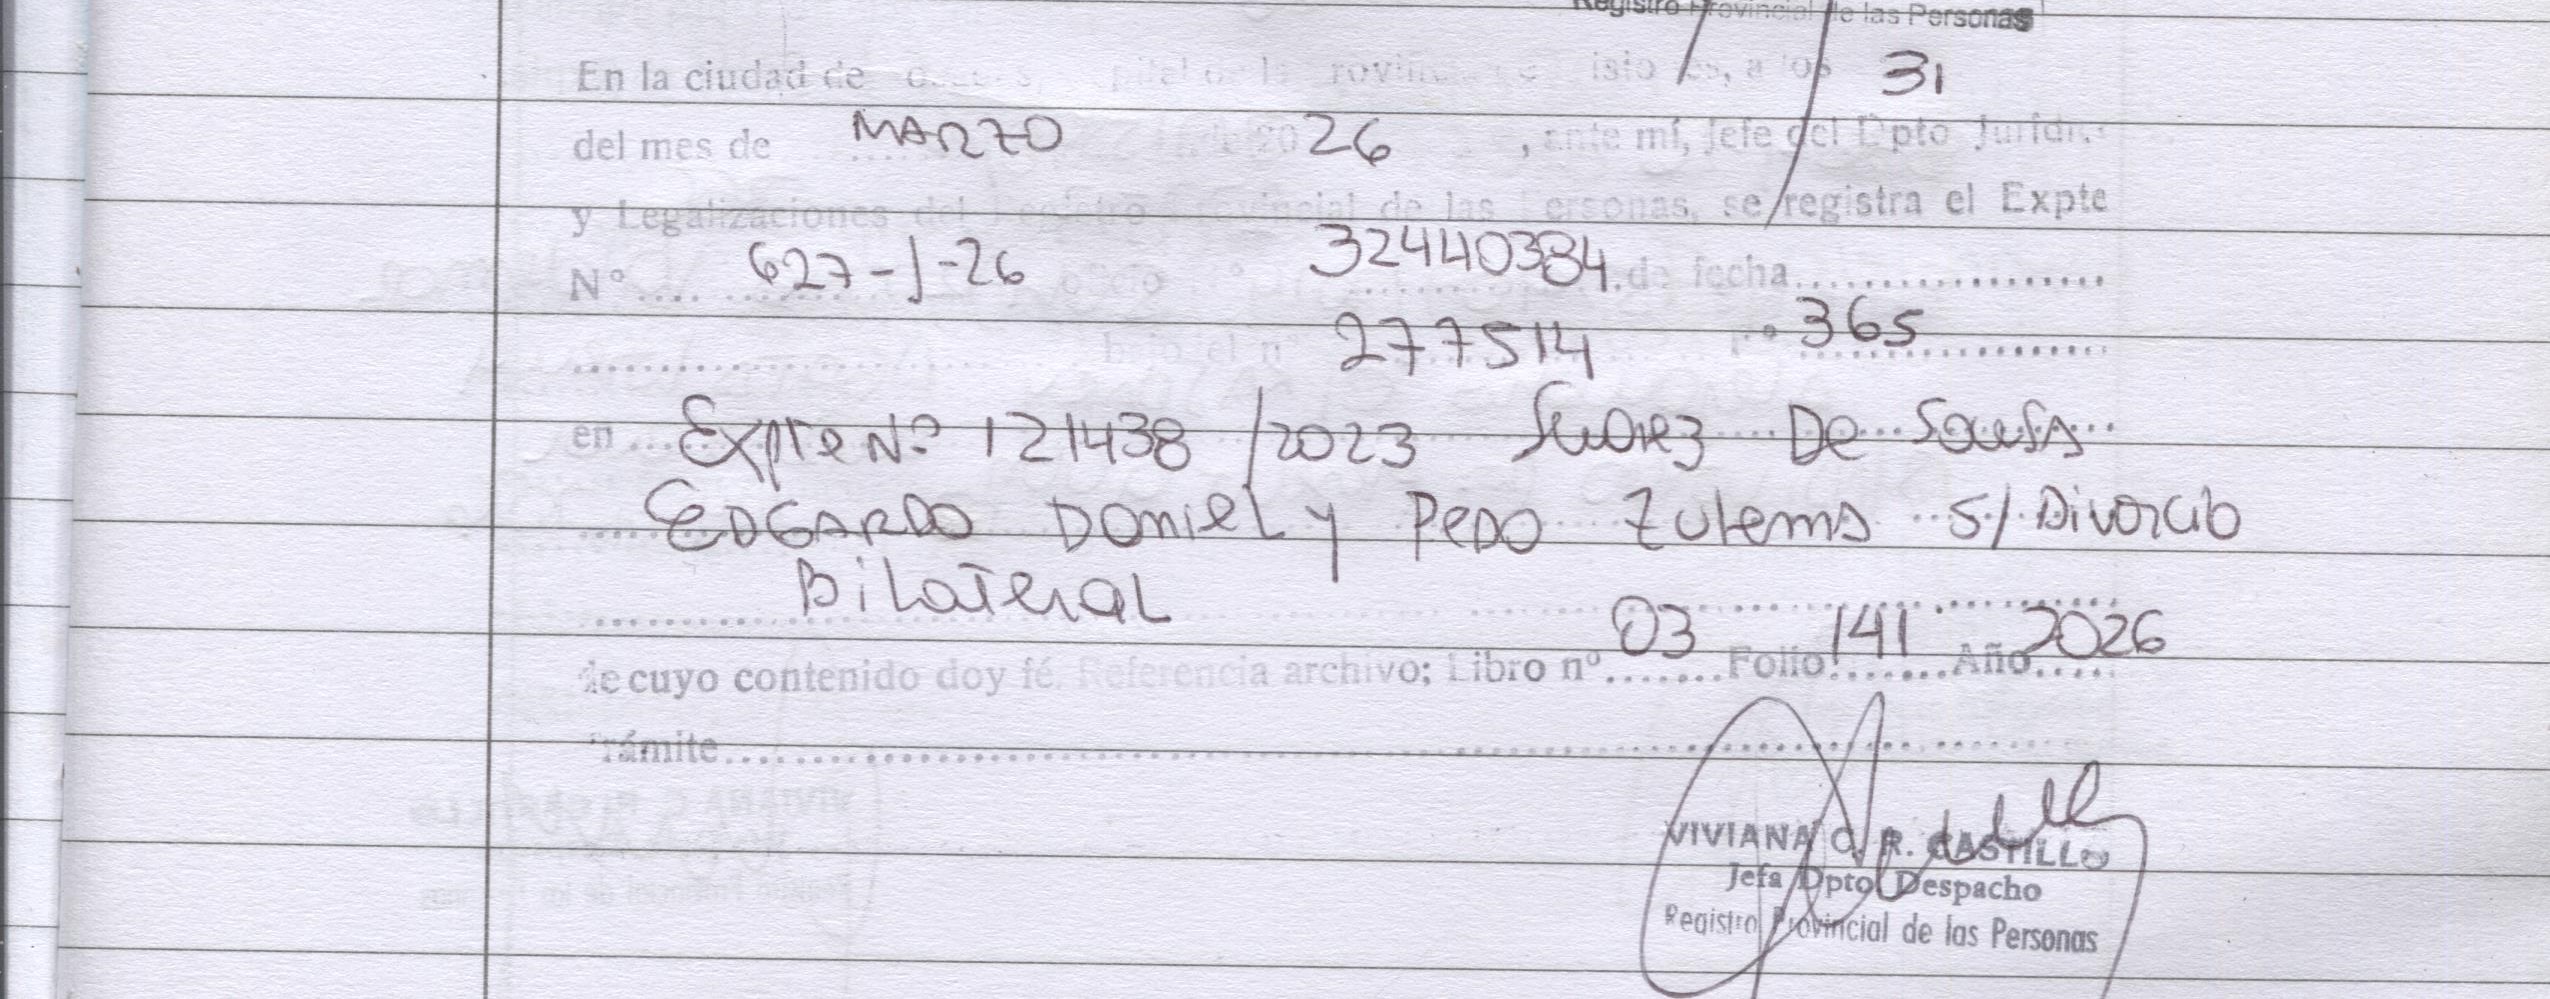 Registro Provincial de las Personas
En la ciudad de Posadas, capital de la Provincia de Misiones, a los 31
del mes de MARZO 20 26, ante mí, Jefe del Dpto Jurídico
y Legalizaciones del Registro Provincial de las Personas, se registra el Expte
Nº.... 627-J-26 oficio 32440384 de fecha
bajo el nº 277514 Fº 365
en Expte Nº 121438/2023 Suarez De Sousa
EDGARDO Daniel y Pedo Zulema S/ Divorcio
Bilateral
de cuyo contenido doy fé. Referencia archivo; Libro nº 03 Folio 141 Año 2026
Trámite
VIVIANA C. R. CASTILLO
Jefa Dpto Despacho
Registro Provincial de las Personas